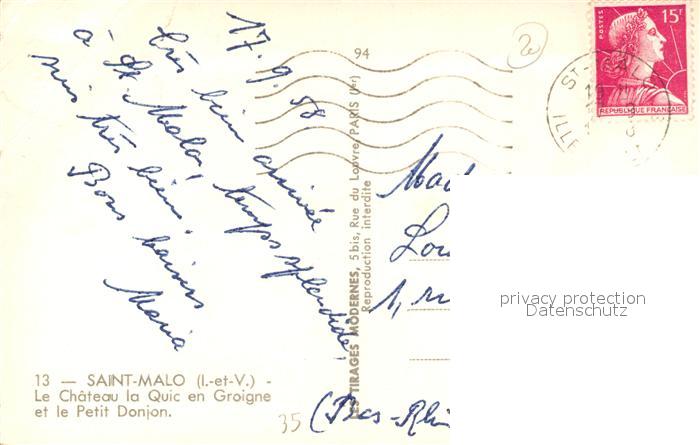 17.9.58.
très bien arrivée
à St. Malo! temps splendide!
suis très bien.
Bons baisers
Maria
13 — SAINT-MALO (I.-et-V.) -
Le Château la Quic en Groigne
et le Petit Donjon.
94
LES TIRAGES MODERNES, 5 bis, Rue du Louvre, PARIS (1er)
Reproduction interdite
2e
POSTES
15F
REPUBLIQUE FRANÇAISE
ST-
Mad
Lou
1, ru
(Bas-Rhin
35
privacy protection
Datenschutz